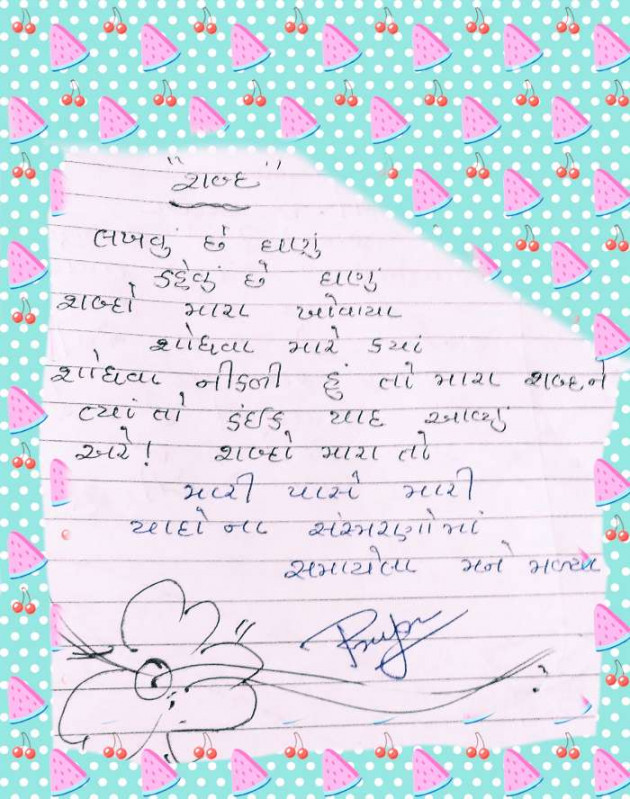 "શબ્દ"
લખવું છે ઘણું
કહેવું છે ઘણું
શબ્દો મારા ખોવાયા
શોધવા મારે ક્યાં
શોધવા નીકળી હું તો મારા શબ્દને
ત્યાં તો કંઈક યાદ આવ્યું
અરે! શબ્દો મારા તો
મારી પાસે મારી
યાદોના સંસ્મરણોમાં
સમાયેલા મને મળ્યા